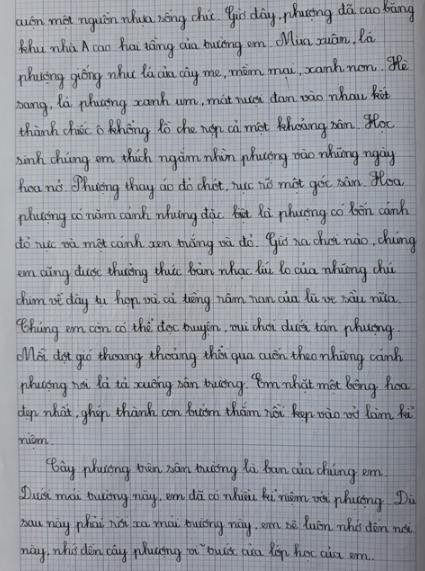 cuồn một nguồn nhựa sống chứ. Giờ đây, phượng đã cao bằng
khu nhà A cao hai tầng của trường em. Mùa xuân, lá
phượng giống như lá của cây me, mềm mại, xanh non. Hè
sang, lá phượng xanh um, mát rượi đan vào nhau kết
thành chiếc ô khổng lồ che rợp cả một khoảng sân. Học
sinh chúng em thích ngắm nhìn phượng vào những ngày
hoa nở. Phượng thay áo đỏ chót, rực rỡ một góc sân. Hoa
phượng có năm cánh nhưng đặc biệt là phượng có bốn cánh
đỏ rực và một cánh xen trắng và đỏ. Giờ ra chơi nào, chúng
em cũng được thưởng thức bản nhạc líu lo của những chú
chim về đây tụ họp và cả tiếng râm ran của lũ ve sầu nữa.
Chúng em còn có thể đọc truyện, vui chơi dưới tán phượng.
Mỗi đợt gió thoang thoảng thổi qua cuốn theo những cánh
phượng rơi lả tả xuống sân trường. Em nhặt một bông hoa
đẹp nhất, ghép thành con bướm thắm rồi kẹp vào vở làm kỉ
niệm.
Cây phượng trên sân trường là bạn của chúng em.
Dưới mái trường này, em đã có nhiều kỉ niệm với phượng. Dù
sau này phải rời xa mái trường này, em sẽ luôn nhớ đến nơi
này, nhớ đến cây phượng vĩ trước cửa lớp học của em.